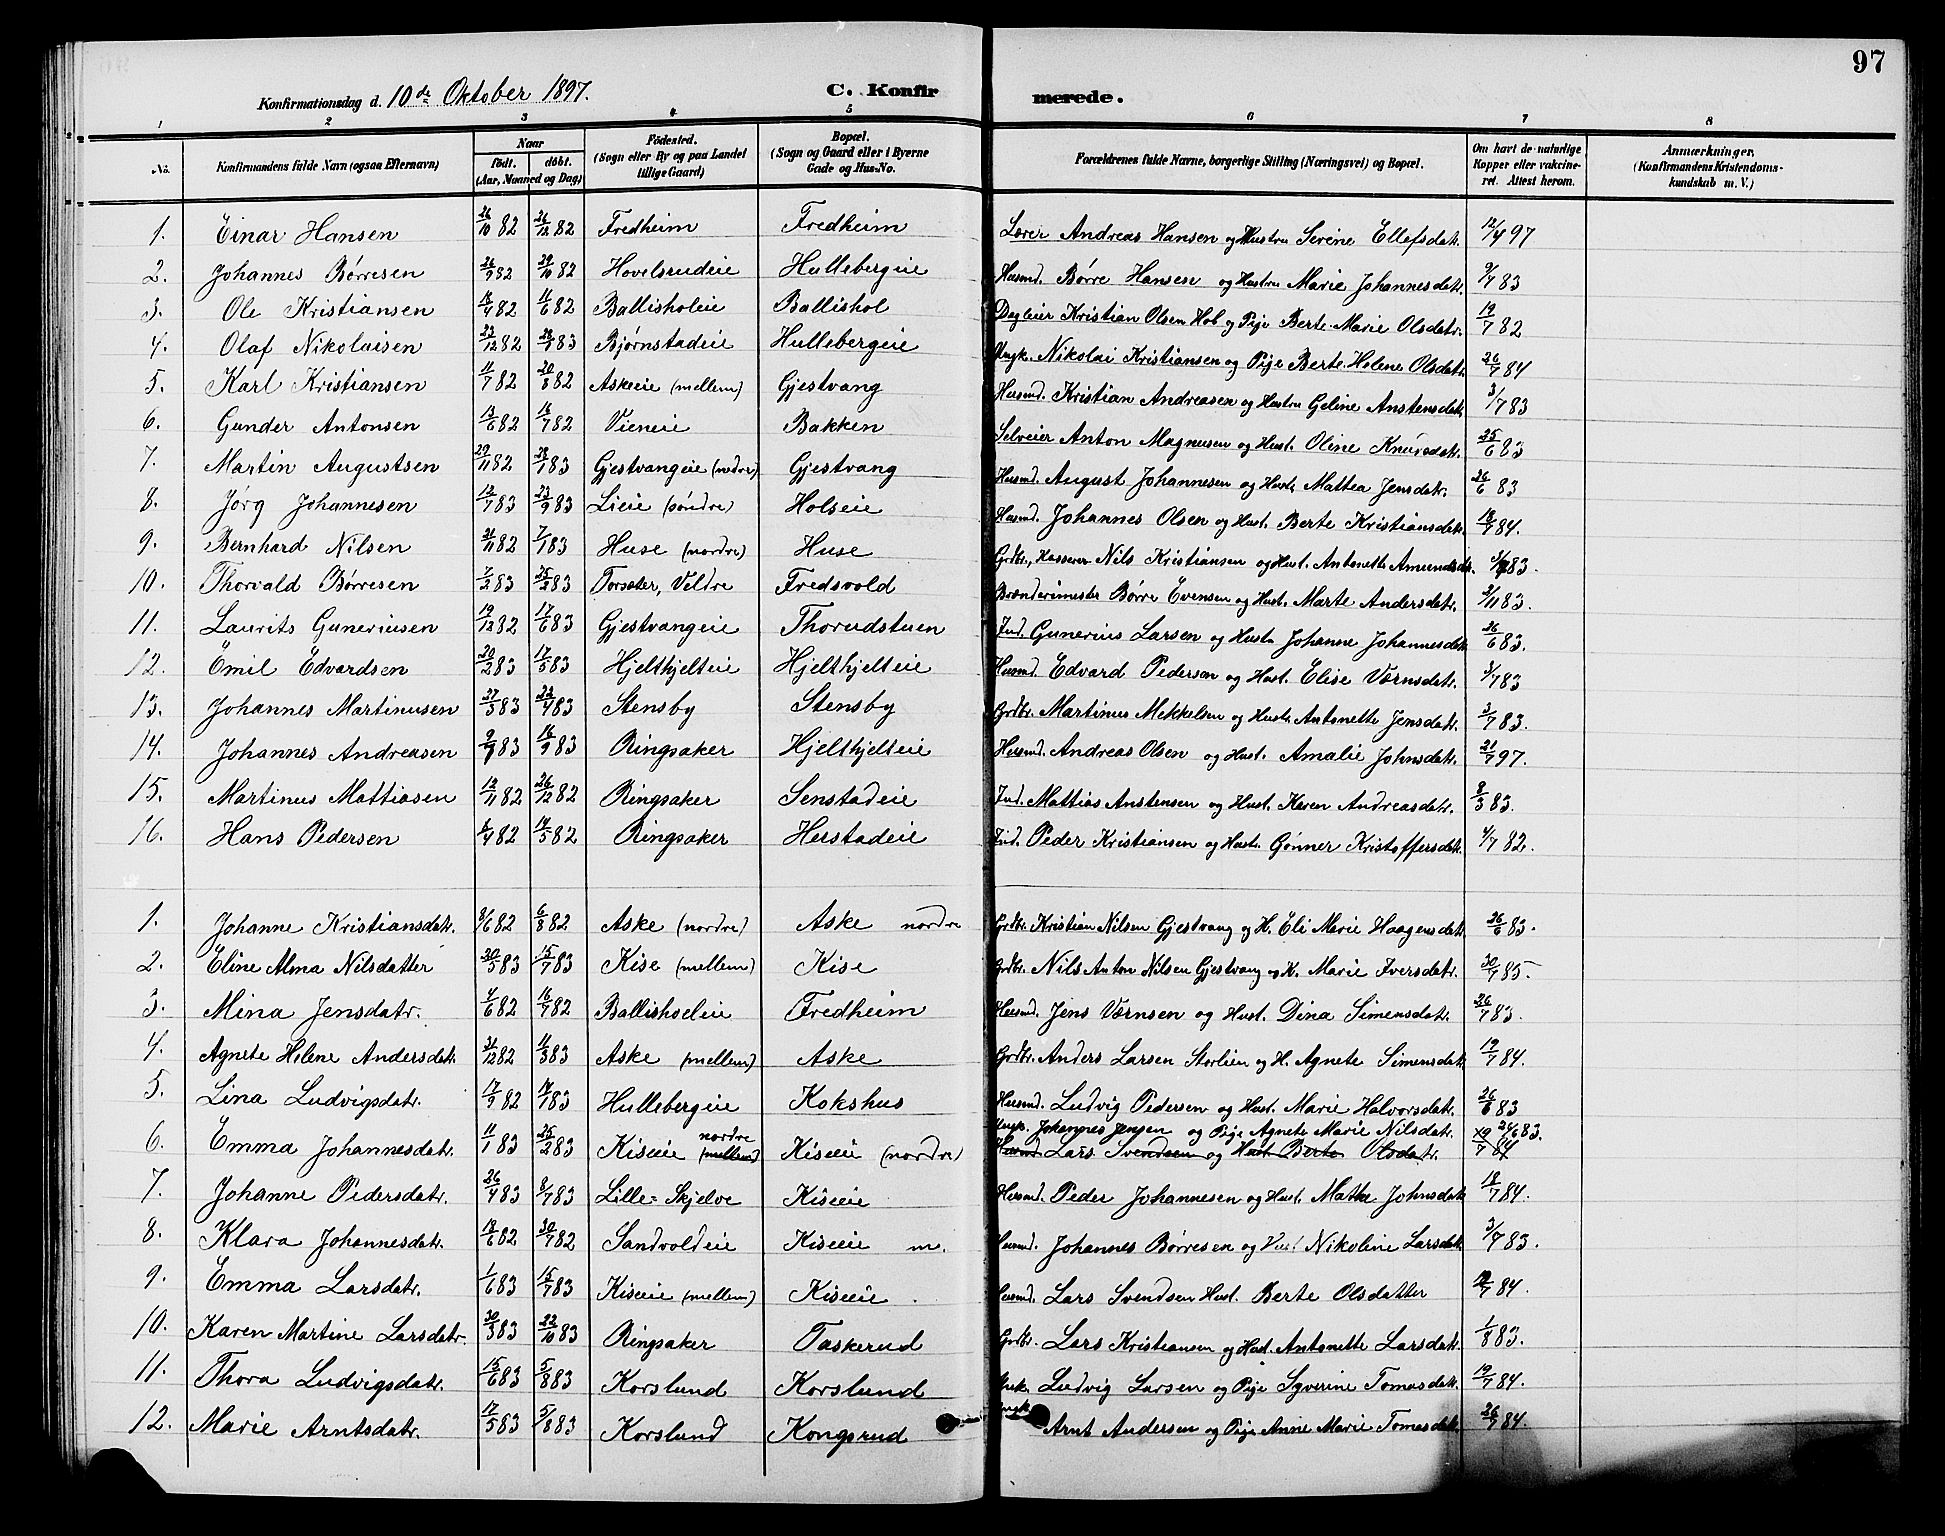 97
Konfirmationsdag d. 10de Oktober 1897. C. Konfirmerede.
1 2 3 4 5 6 7 8
No. Konfirmandens fulde Navn (ogsaa Efternavn) Naar født. døbt. (Aar, Maaned og Dag) Fødested. (Sogn eller By og paa Landet tillige Gaard) Bopæl. (Sogn og Gaard eller i Byerne Gade og Hus-No. Forældrenes fulde Navne, borgerlige Stilling (Næringsvei) og Bopæl. Om havt de naturlige Kopper eller vakcineret. Attest herom. Anmærkninger, (Konfirmandens Kristendomskundskab m. V.)
1. Einar Hansen 26/10 82 26/12 82 Fredheim Fredheim Lærer Andreas Hansen og Hustru Serine Ellefsdat. 12/4 97
2. Johannes Børresen 26/9 82 29/10 82 Hovelsrudeie Hullebergeie Husmd. Børre Hansen og Hustru Marie Johannesdatr. 9/7 83
3. Ole Kristiansen 18/4 82 11/6 82 Ballisholeie Ballishol Dagleier Kristian Olsen Hol og Pige Berte Marie Olsdatr. 19/7 82
4. Olaf Nikolaisen 23/12 82 28/1 83 Bjørnstadeie Hullebergeie Ungk. Nikolai Kristiansen og Pige Berte Helene Olsdatr. 26/7 84
5. Karl Kristiansen 11/7 82 20/8 82 Askeeie (mellem) Gjestvang Husmd. Kristian Andreasen og Hustru Geline Anstensdatr. 3/7 83
6. Gunder Antonsen 13/6 82 16/7 82 Vieneie Bakken Selveier Anton Magnusen og Hust. Oline Knutsdatr. 25/6 83
7. Martin Augustsen 29/11 82 28/1 83 Gjestvangeie (nedre) Gjestvang Husmd. August Johannesen og Hust. Mattea Jensdatr. 26/6 83
8. Jørg Johannesen 13/7 83 23/9 83 Lieie (søndre) Holseie Husmd. Johannes Olsen og Hust. Berte Kristiansdatr. 18/7 84.
9. Bernhard Nilsen 21/11 82 7/1 83 Huse (nordre) Huse Grdbr., Kasserer Nils Kristiansen og Hust. Antonette Amundsdtr. 3/7 83.
10. Thorvald Børresen 7/2 83 25/3 83 Torsæter, Veldre Fredsvold Brænderimester Børre Evensen og Hust. Marte Andersdatr. 2/11 83.
11. Laurits Guneriusen 19/12 82 17/6 83 Gjestvangeie Thorudstuen Ind. Gunerius Larsen og Hustr. Johanne Johannesdatr. 26/6 83.
12. Emil Edvardsen 20/2 83 17/5 83 Hjelthjelteie Hjelthjelteie Husmd. Edvard Pedersen og Hust. Elise Værnsdatr. 3/7 83
13. Johannes Martinusen 27/3 83 22/4 83 Stensby Stensby Grdbr. Martinus Mekkelsen og Hustr. Antonette Jensdatr. 3/7 83.
14. Johannes Andreasen 9/8 83 16/9 83 Ringsaker Hjelthjelteie Husmd. Andreas Olsen og Hust. Amalie Johnsdatr. 21/7 97.
15. Martinus Mattiasen 12/11 82 26/12 82 Ringsaker Senstadeie Ind. Mattias Anstensen og Hust. Karen Andreasdatr. 8/3 83.
16. Hans Pedersen 2/4 82 14/5 82 Ringsaker Herstadeie Ind. Peder Kristiansen og Hust. Gønner Kristoffersdatr. 4/7 82.
1. Johanne Kristiansdatr. 8/6 82 6/8 82 Aske (nordre) Aske nordre Grdbr. Kristian Nilsen Gjestvang og H. Eli Marie Haagensdatr. 26/6 83.
2. Eline Alma Nilsdatter 30/5 83 15/7 83 Kise (mellem) Kise Grdbr. Nils Anton Nilsen Gjestvang og H. Marie Iversdatr. 30/7 85.
3. Mina Jensdatr. 4/6 82 16/7 82 Ballishoeleie Fredheim Husmd. Jens Værnsen og Hust. Dina Simensdatr. 26/7 83.
4. Agnete Helene Andersdatr. 31/12 82 11/3 83 Aske (mellem) Aske Grdbr. Anders Larsen Storlien og H. Agnete Simensdatr. 19/7 84.
5. Lina Ludvigsdatr. 17/9 82 14/1 83 Hullebergeie Kokshus Husmd. Ludvig Pedersen og Hust. Marie Halvorsdatr. 26/6 83
6. Emma Johannesdatr. 11/1 83 25/2 83 Kiseeie nordre (mellem) Kiseeie (nordre) Ungk. Johannes Jensen og Pige Agnete Marie Nilsdatr. 26/6 83.
Husmd. Lars Svendsen og Hust. Berte Olsdatr. 19/7 84
7. Johanne Pedersdatr. 26/4 83 8/7 83 Lille-Skjelve Kiseeie Husmd. Peder Johannesen og Hust. Mathe Johnsdatr. 18/7 84.
8. Klara Johannesdatr. 18/6 82 30/7 82 Sandvoldeie Kiseeie m. Husmd. Johannes Børresen og Hust Nikoline Larsdatr. 3/7 83.
9. Emma Larsdatr. 1/6 83 15/7 83 Kiseeie (mellem) Kiseeie Husmd. Lars Svendsen Hust. Berte Olsdatter 19/7 84.
10. Karen Martine Larsdatr. 30/3 83 22/10 83 Ringsaker Taskerud Grdbr. Lars Kristiansen og Hust. Antonette Larsdatr. 1/8 83.
11. Thora Ludvigsdatr. 15/6 83 5/8 83 Korslund Korslund Ungk. Ludvig Larsen og Pige Syverine Tomasdatr. 19/7 84.
12. Marie Arntsdatr. 17/5 83 5/8 83 Korslund Kongsrud Ungk. Arnt Andersen og Pige Anne Marie Tomasdatr. 26/7 84.